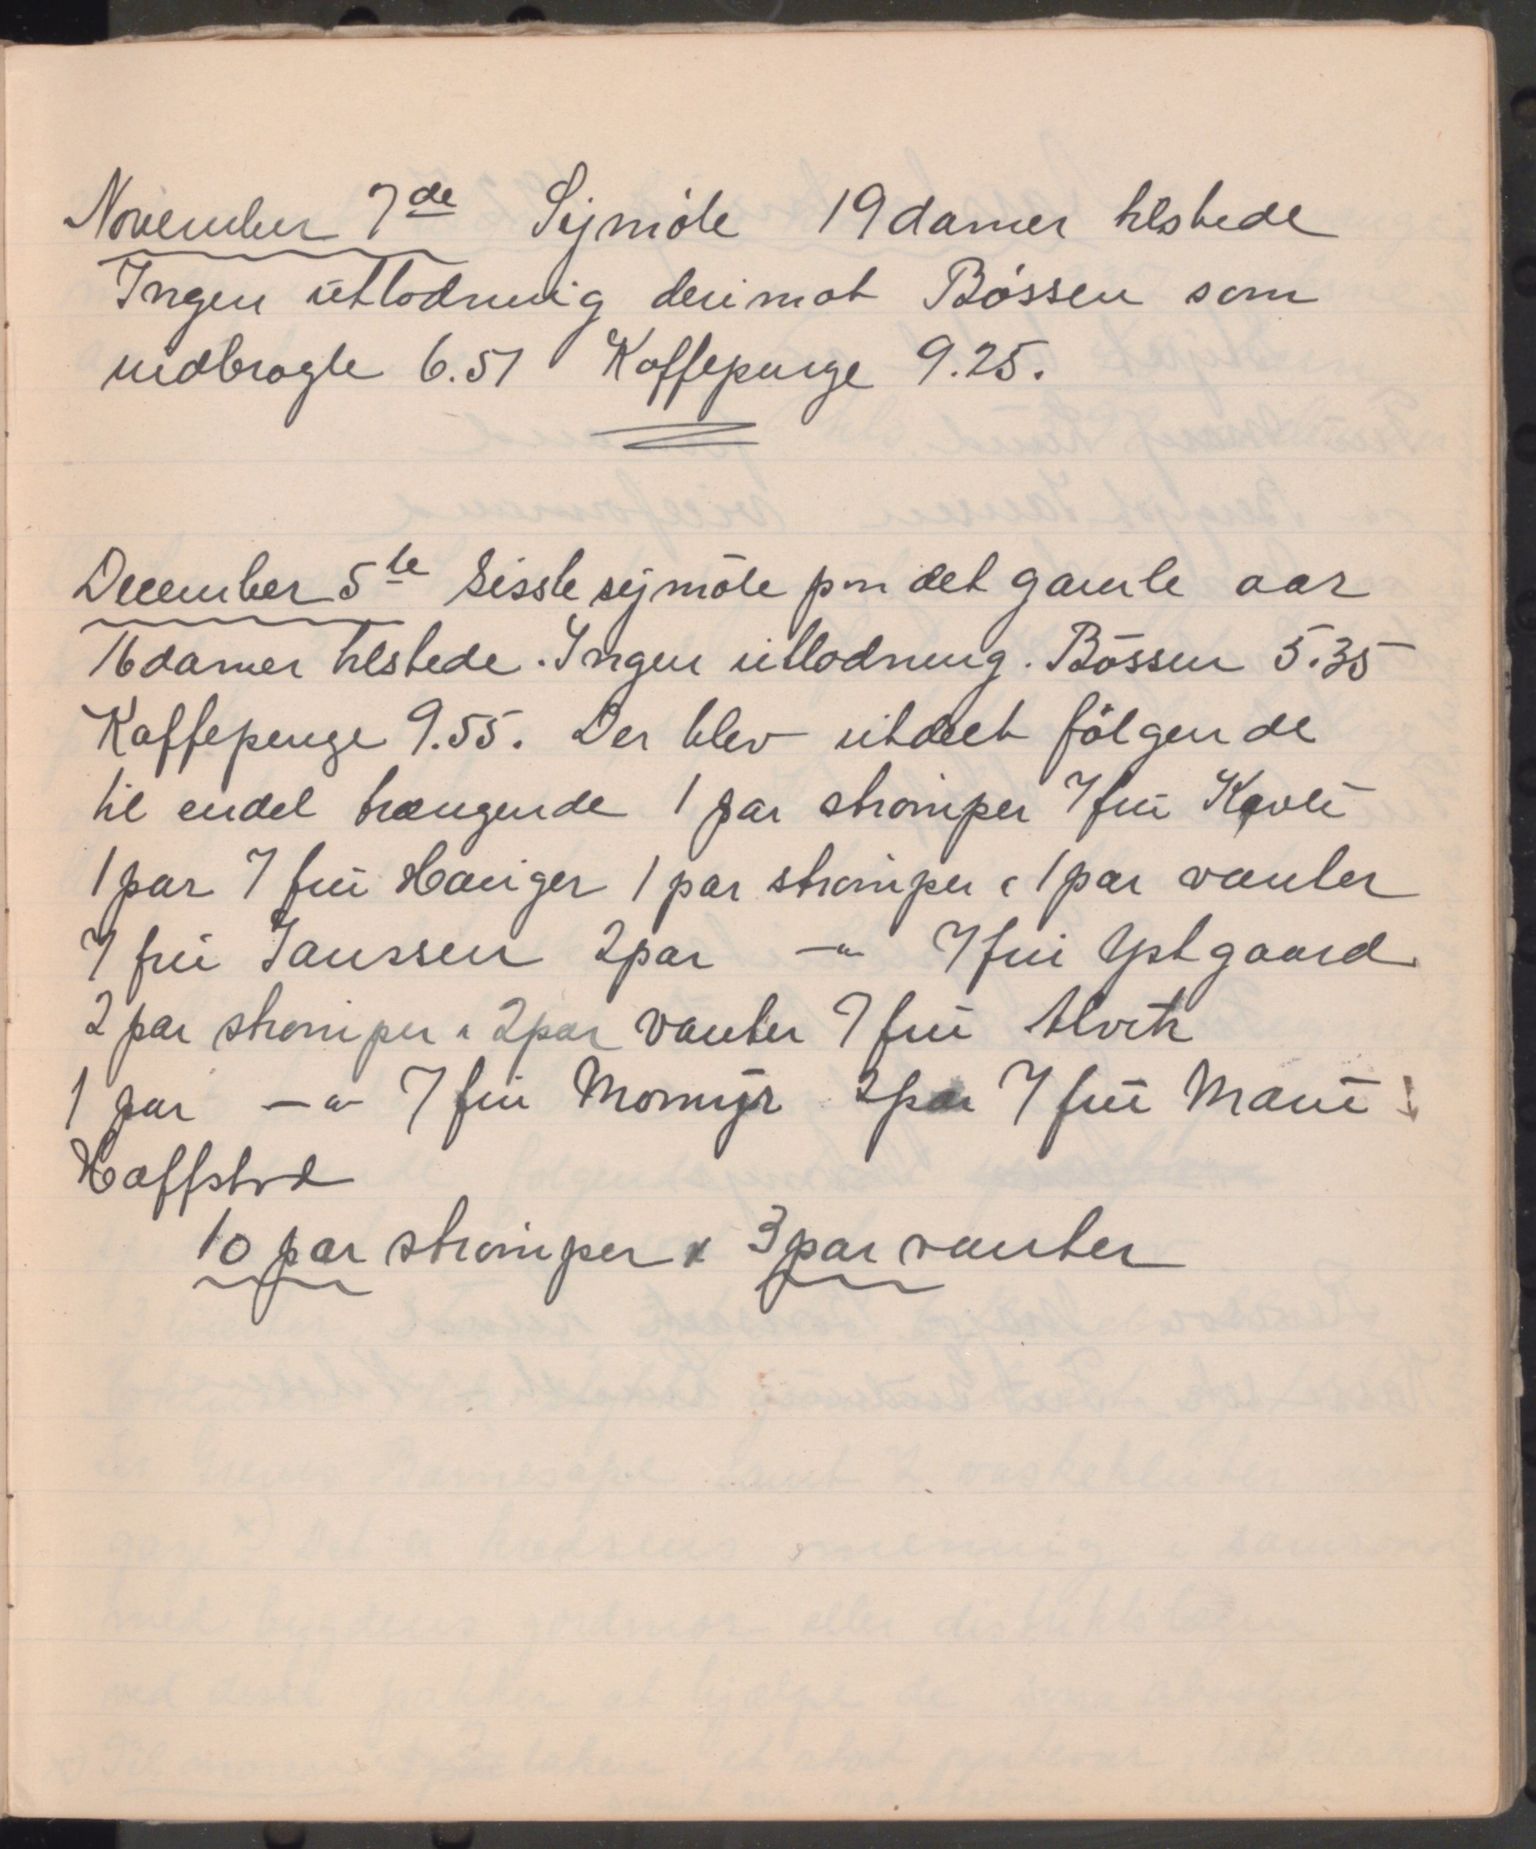 November 7de Symöte 19 damer tilstede
Ingen utlodning derimot Bössen som
indbragte 6.51 Kaffepenge 9.25.
December 5te Sisste symöte paa det gamle aar
16 damer tilstede. Ingen utlodning. Bössen 5.35
Kaffepenge 9.55. Der blev utdelt fölgende
til endel trængende 1 par strömper T fru
1 par T fru Hauger 1 par strömper & 1 par vanter
T fru Janssen 2 par —"— T fru Ystgaard
2 par strömper & 2 par vanter T fru Alvik
1 par —"— T fru Momyr 2 par T fru
Haffstad
10 par strömper & 3 par vanter